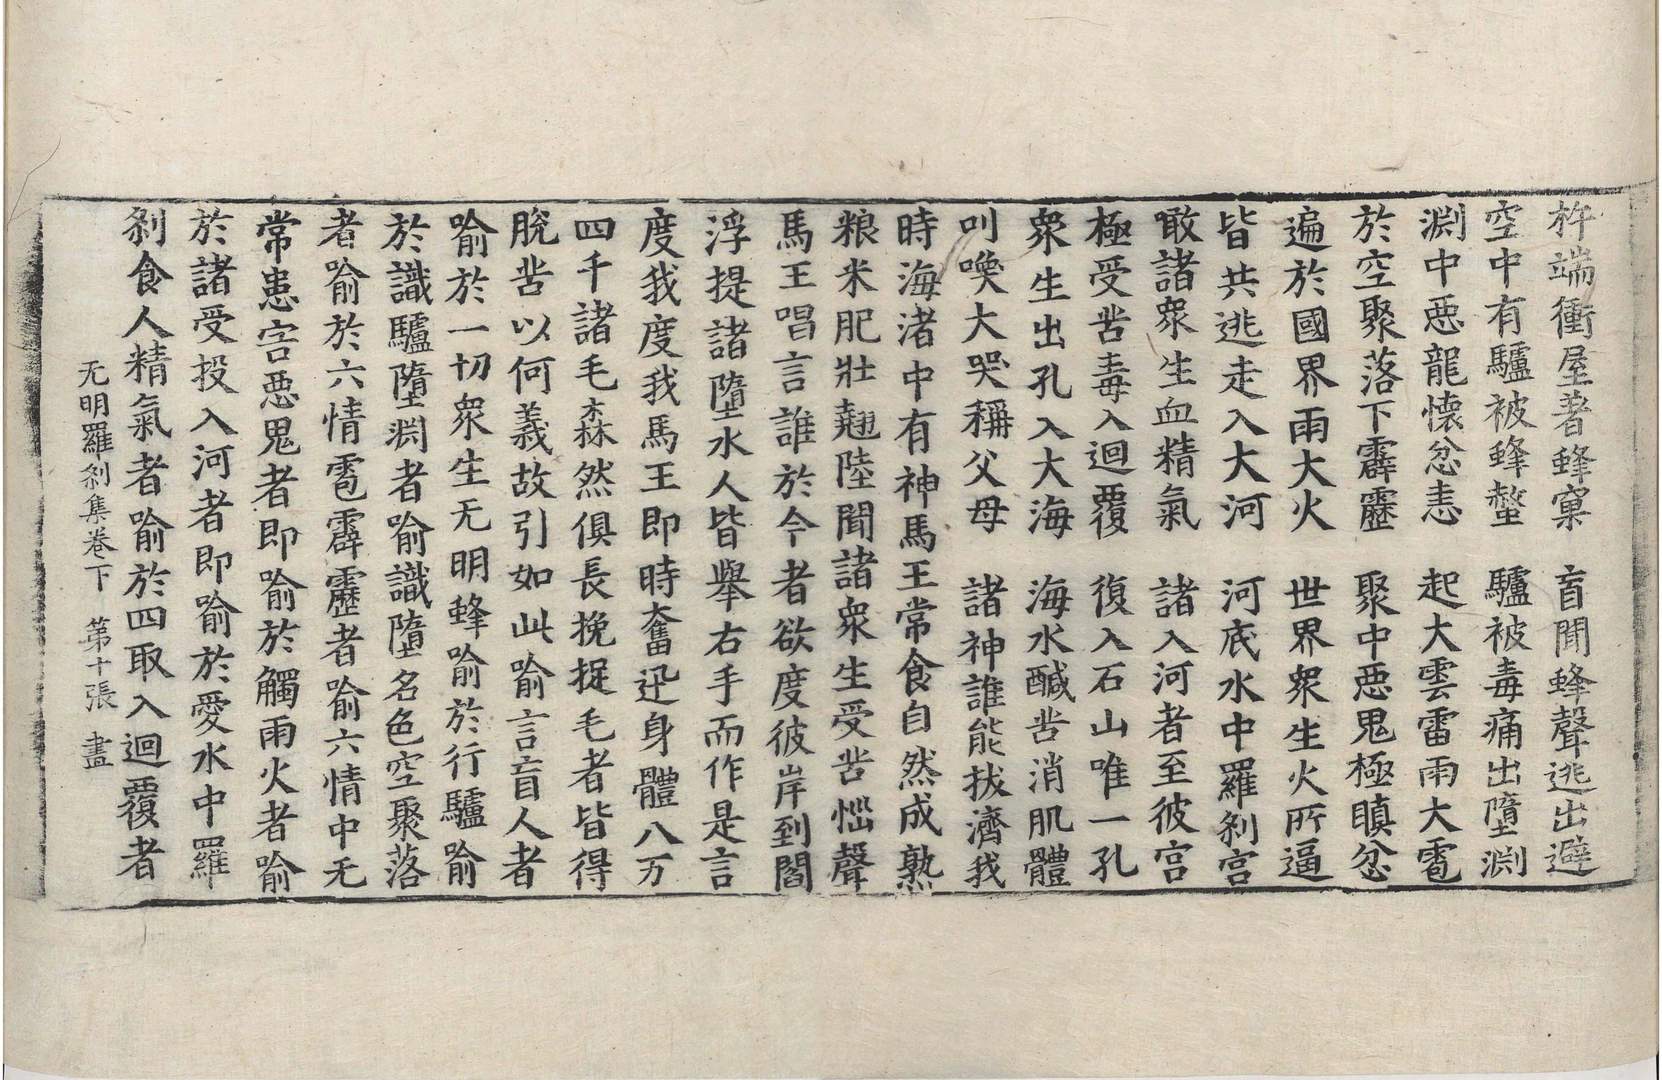 杵端衝屋著蜂窠　盲聞蜂聲逃出避
空中有驢被蜂螫　驢被毒痛出墮淵
淵中惡龍懷忿恚　起大雲雷雨大雹
於空聚落下霹靂　聚中惡鬼極瞋忿
遍於國界雨大火　世界眾生火所逼
皆共逃走入大河　河底水中羅剎宮
噉諸眾生血精氣　諸入河者至彼宮
極受苦毒入迴覆　復入石山唯一孔
眾生出孔入大海　海水醎苦消肌體
叫喚大哭稱父母　諸神誰能拔濟我
時海渚中有神馬王常食自然成熟
粮米肥壯翹陸聞諸眾生受苦惱聲
馬王唱言誰於今者欲度彼岸到閻
浮提諸墮水人皆舉右手而作是言
度我度我馬王即時奮迅身體八万
四千諸毛森然俱長挽捉毛者皆得
脫苦以何義故引如此喻言盲人者
喻於一切眾生无明蜂喻於行驢喻
於識驢墮淵者喻識墮名色空聚落
者喻於六情雹霹靂者喻六情中无
常患害惡鬼者即喻於觸雨火者喻
於諸受投入河者即喻於愛水中羅
剎食人精氣者喻於四取入迴覆者
无明羅剎集卷下　第十張　畫